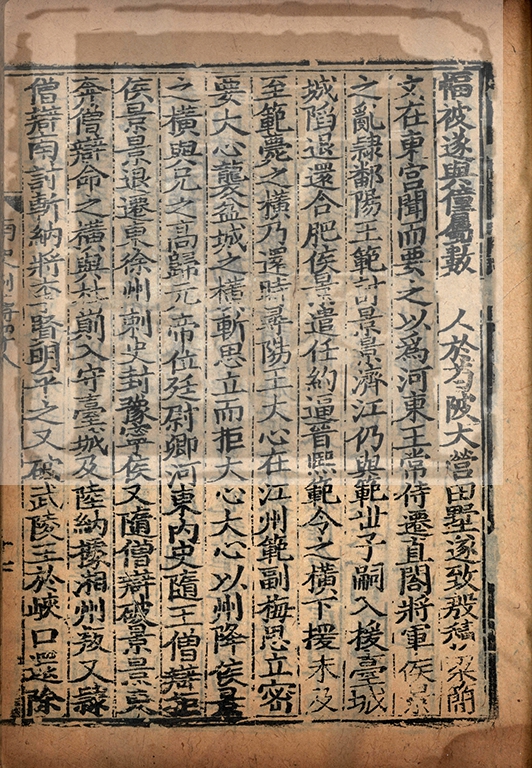 幅被遂與僮屬數 人於芍陂大營田墅遂致殷積梁簡
文在東宮聞而要之以爲河東王常侍遷直閤將軍侯景
之亂隷鄱陽王範討景景濟江仍與範世子嗣入援臺城
城陷退還合肥侯景遣任約逼晉熙範令之橫下援未及
至範薨之橫乃還時尋陽王大心在江州範副梅思立密
要大心襲盆城之橫斬思立而拒大心大心以州降侯景
之橫與兄之高歸元帝位廷尉卿河東內史隨王僧辯拒
侯景景退遷東徐州刺史封豫寧侯又隨僧辯破景景東
奔僧辯命之橫與杜崱入守臺城及陸納據湘州叛又隷
僧辯南討斬納將李賢明平之又破武陵王於峽口還除